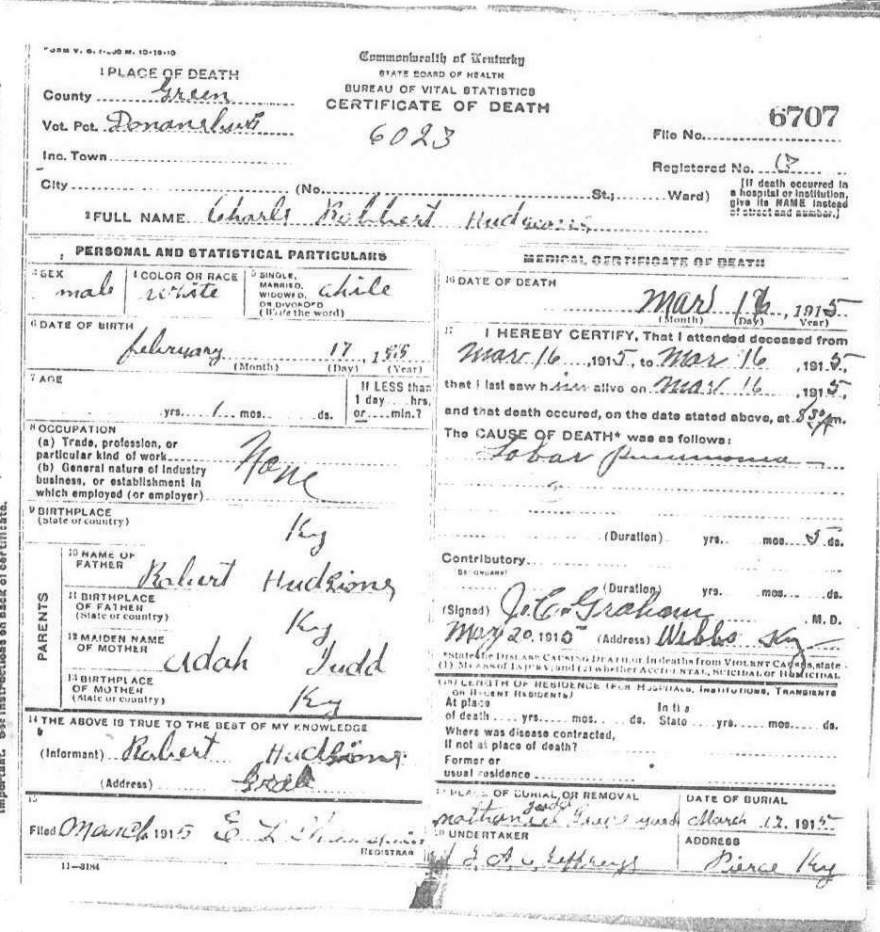 Commonwealth of Kentucky
STATE BOARD OF HEALTH
BUREAU OF VITAL STATISTICS
CERTIFICATE OF DEATH
6023
1 PLACE OF DEATH
County Green
Vot. Pct.
Inc. Town
City (No. St.; Ward)
6707
File No.
Registered No.
[If death occurred in a hospital or institution, give its NAME instead of street and number.]
2 FULL NAME Charls Robbert
PERSONAL AND STATISTICAL PARTICULARS
3 SEX male
4 COLOR OR RACE white
5 SINGLE, MARRIED, WIDOWED, OR DIVORCED (Write the word)
6 DATE OF BIRTH
february 17
(Month) (Day) (Year)
7 AGE
yrs. 1 mos. ds.
If LESS than 1 day hrs. or min.?
8 OCCUPATION
(a) Trade, profession, or particular kind of work
(b) General nature of industry business, or establishment in which employed (or employer)
None
9 BIRTHPLACE
(State or country)
Ky
PARENTS
10 NAME OF FATHER Robert Hudgions
11 BIRTHPLACE OF FATHER (State or country) Ky
12 MAIDEN NAME OF MOTHER Adah Judd
13 BIRTHPLACE OF MOTHER (State or country) Ky
14 THE ABOVE IS TRUE TO THE BEST OF MY KNOWLEDGE
(Informant) Robert Hudgions
(Address)
15
Filed March 1915 E L
REGISTRAR
11-3184
MEDICAL CERTIFICATE OF DEATH
16 DATE OF DEATH
Mar 16, 1915
(Month) (Day) (Year)
17 I HEREBY CERTIFY, That I attended deceased from
Mar 16, 1915, to Mar 16, 1915,
that I last saw him alive on Mar 16, 1915,
and that death occured, on the date stated above, at m.
The CAUSE OF DEATH* was as follows:
Lobar pneumonia
(Duration) yrs. mos. 5 ds.
Contributory
SECONDARY
(Duration) yrs. mos. ds.
(Signed) J. C. Graham, M. D.
20, 1915 (Address) Webbs Ky
*State the DISEASE CAUSING DEATH, or in deaths from VIOLENT CAUSES, state (1) MEANS OF INJURY, and (2) whether ACCIDENTAL, SUICIDAL or HOMICIDAL
18 LENGTH OF RESIDENCE (FOR HOSPITALS, INSTITUTIONS, TRANSIENTS OR RECENT RESIDENTS)
At place of death yrs. mos. ds. In the State yrs. mos. ds.
Where was disease contracted, If not at place of death?
Former or usual residence
19 PLACE OF BURIAL OR REMOVAL
yard
DATE OF BURIAL
March 17, 1915
20 UNDERTAKER
Jeffreys
ADDRESS
Pierce Ky
important. See instructions on back of certificate.